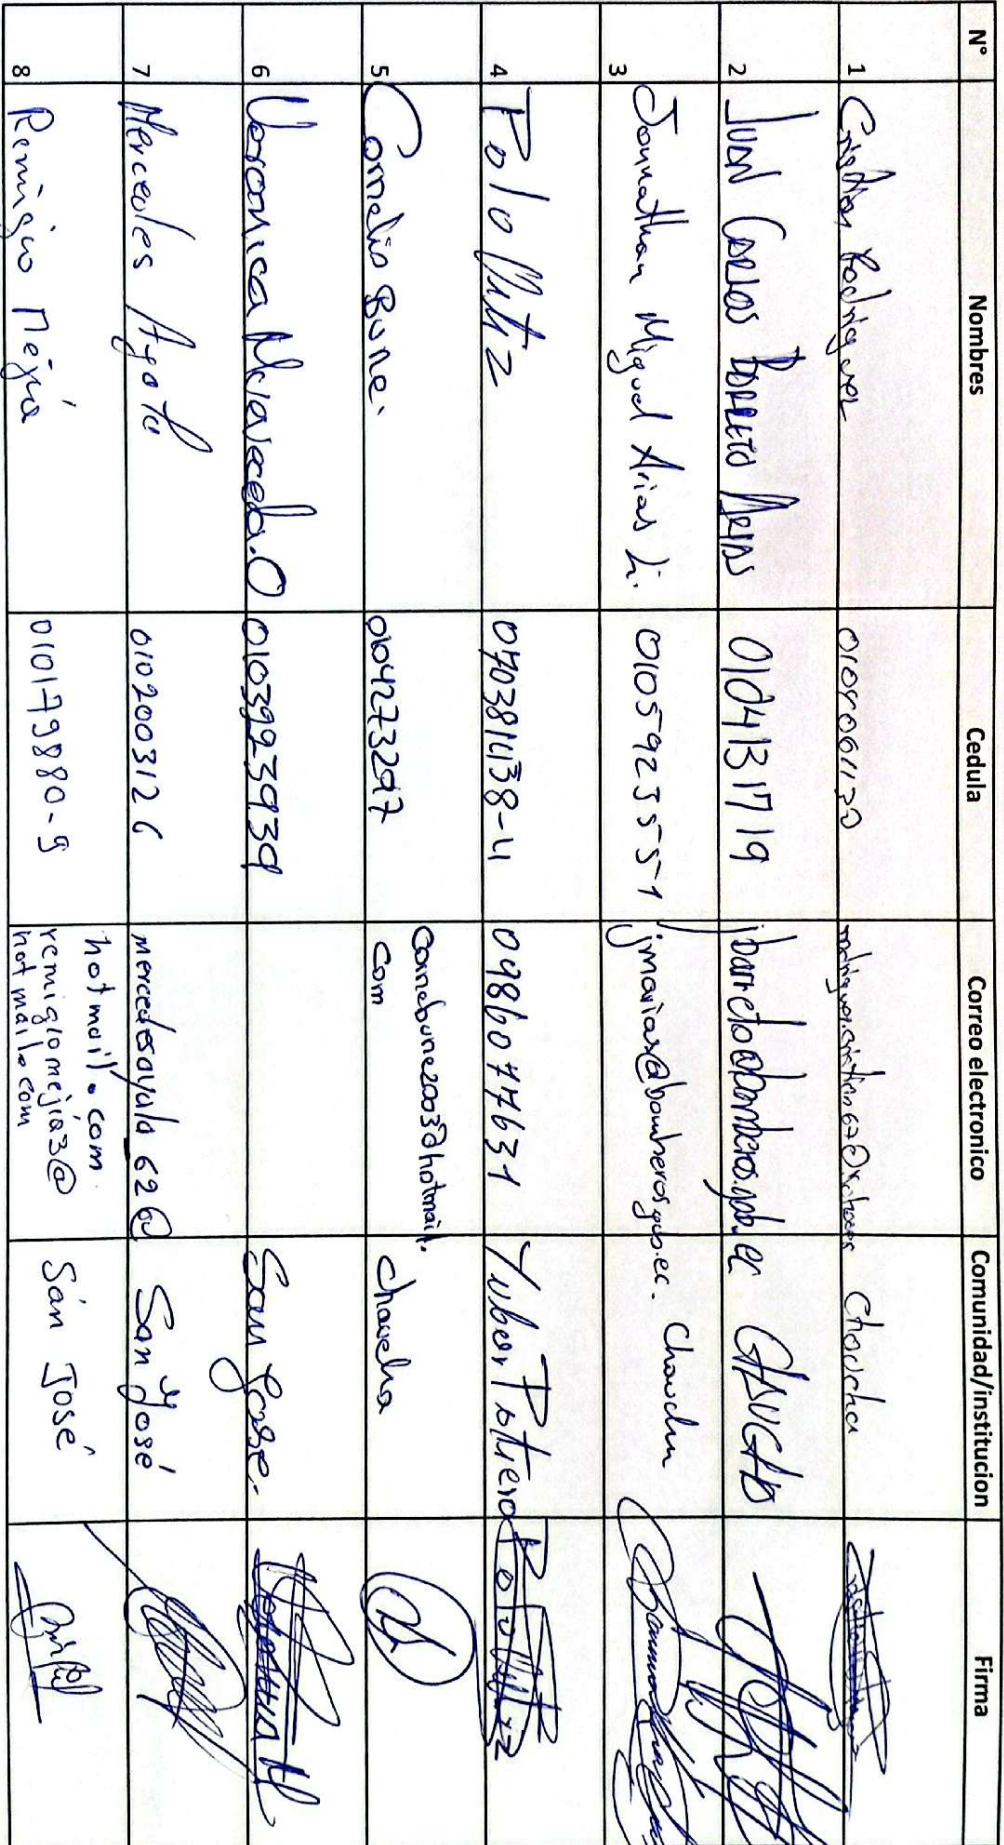 N° Nombres Cedula Correo electronico Comunidad/institucion Firma
1 Cristian Rodriguez Chaucha
2 JUAN CARLOS BARRETO ARIAS 0104131719 jbarreto@bomberos.gob.ec CHAUCHA
3 Jonnathan Miguel Arias L. 0105923555-1 jmarias@bomberos.gob.ec. Chaucha
4 Polo 070381438-4 0986077631 Yuber
5 Cornelio Bune. 0104273297 cornebune2003@hotmail.
com chaucha
6 Veronica 0103923939 San Jose.
7 Mercedes 0102003126 mercedesayala62@
hotmail.com. San José
8 Remigio Mejía 010179880-9 remigiomejia3@
hotmail.com San José